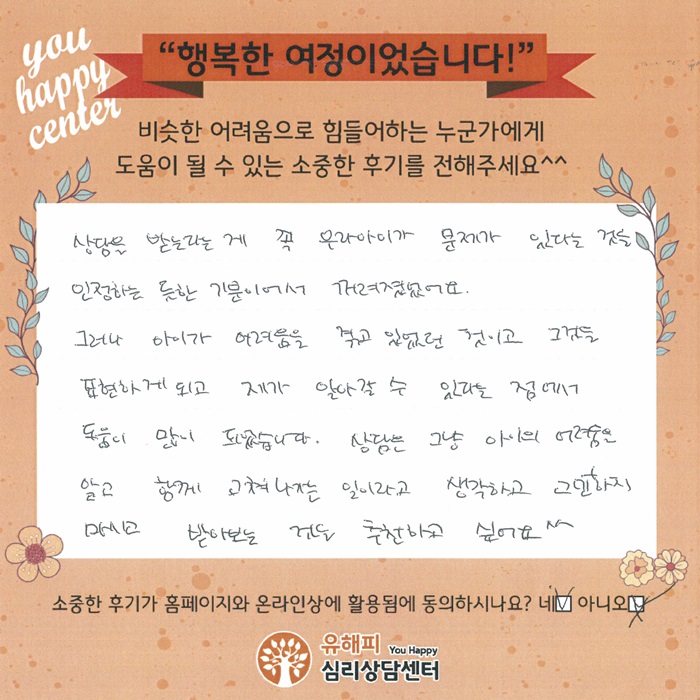 you
happy
center
“행복한 여정이었습니다!”
비슷한 어려움으로 힘들어하는 누군가에게
도움이 될 수 있는 소중한 후기를 전해주세요^^
상담을 받는다는 게 꼭 아이가 문제가 있다는 것을
인정하는 듯한 기분이어서 꺼려졌었어요.
그러나 아이가 어려움을 겪고 있었던 것이고 그것을
표현하게 되고 제가 알아갈 수 있다는 점에서
도움이 많이 되었습니다. 상담은 그냥 아이의 어려움을
알고 함께 고쳐나가는 일이라고 생각하고 고민하지
마시고 받아보는 것을 추천하고 싶어요^^
소중한 후기가 홈페이지와 온라인상에 활용됨에 동의하시나요? 네 아니오
유해피 You Happy
심리상담센터